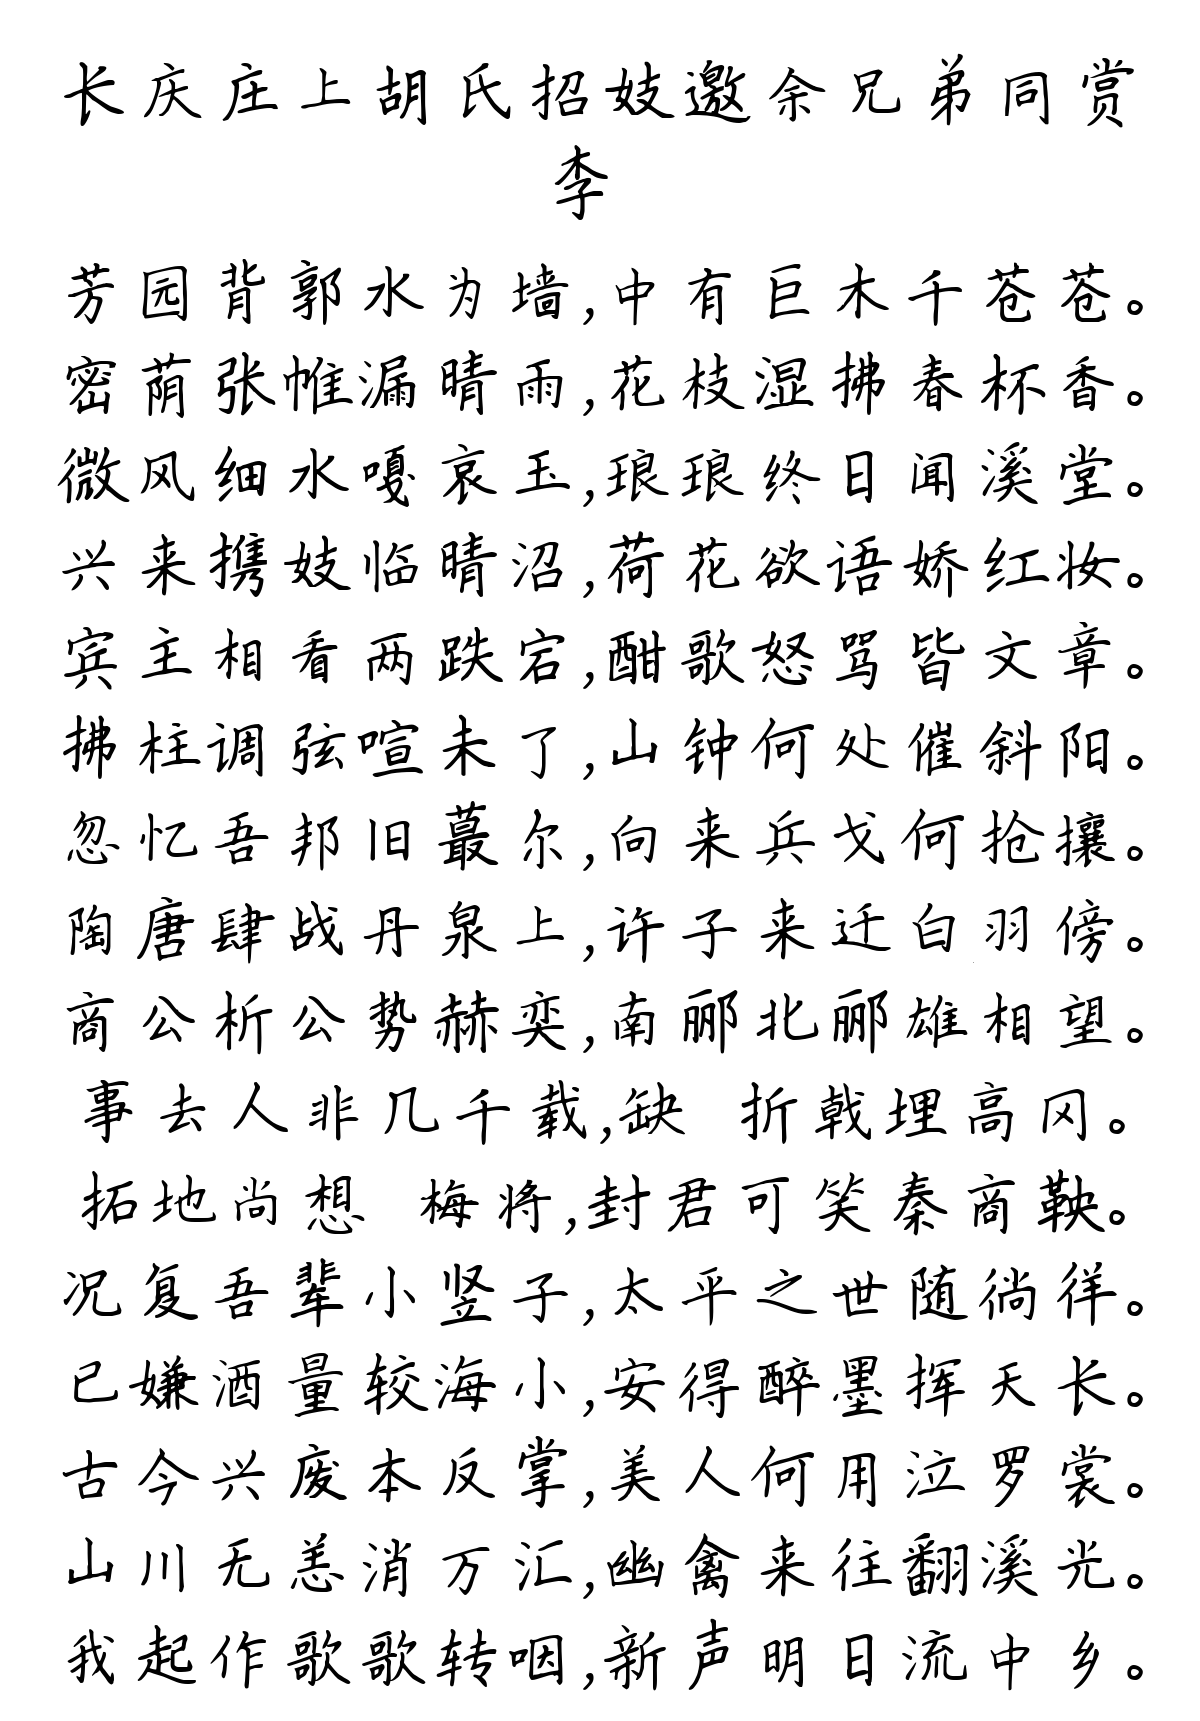 长庆庄上胡氏招妓邀余兄弟同赏
李
芳园背郭水为墙,中有巨木千苍苍。
密荫张帷漏晴雨,花枝湿拂春杯香。
微风细水嘎哀玉,琅琅终日闻溪堂。
兴来携妓临晴沼,荷花欲语娇红妆。
宾主相看两跌宕,酣歌怒骂皆文章。
拂柱调弦喧未了,山钟何处催斜阳。
忽忆吾邦旧蕞尔,向来兵戈何抢攘。
陶唐肆战丹泉上,许子来迁白羽傍。
商公析公势赫奕,南郦北郦雄相望。
事去人非几千载,缺 折戟埋高冈。
拓地尚想 梅将,封君可笑秦商鞅。
况复吾辈小竖子,太平之世随徜徉。
已嫌酒量较海小,安得醉墨挥天长。
古今兴废本反掌,美人何用泣罗裳。
山川无恙消万汇,幽禽来往翻溪光。
我起作歌歌转咽,新声明日流中乡。